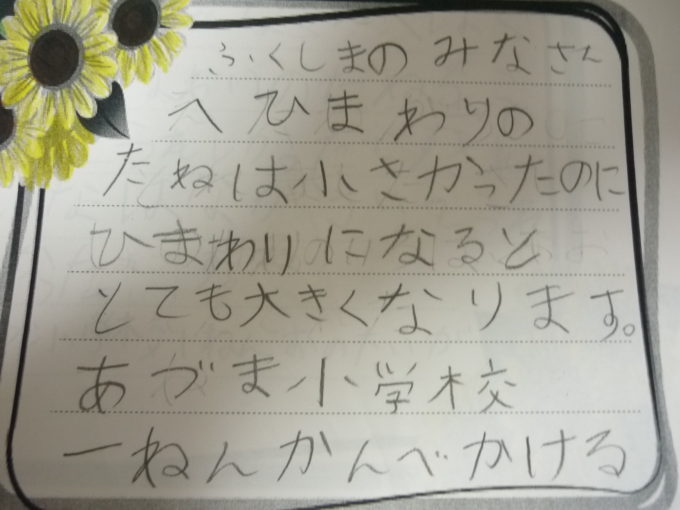 ふくしまのみなさん
へひまわりの
たねは小さかったのに
ひまわりになると
とても大きくなります。
あづま小学校
一ねんかんべかける